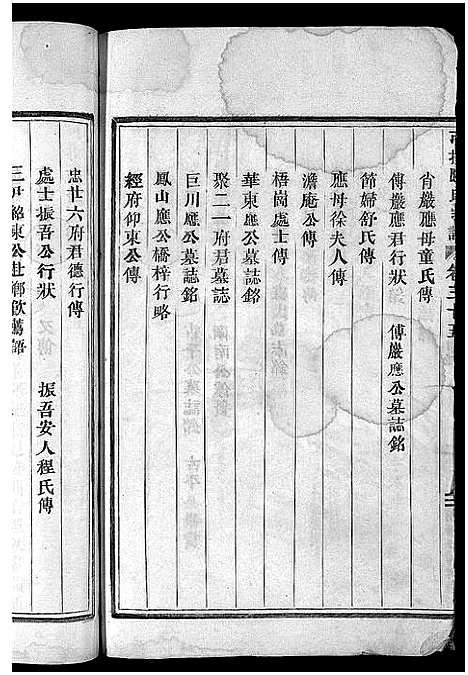 卷三十五
肖巖應母童氏傳
傅巖應君行狀　傅巖應公墓誌銘
節婦舒氏傳
應母徐夫人傳
澹庵公傳
梧崗處士傳
華東應公墓誌銘
聚二一府君墓誌
巨川應公墓誌銘
鳳山應公橋梓行略
經府仰東公傳
忠廿六府君德行傳
處士振吾公行狀　振吾安人程氏傳